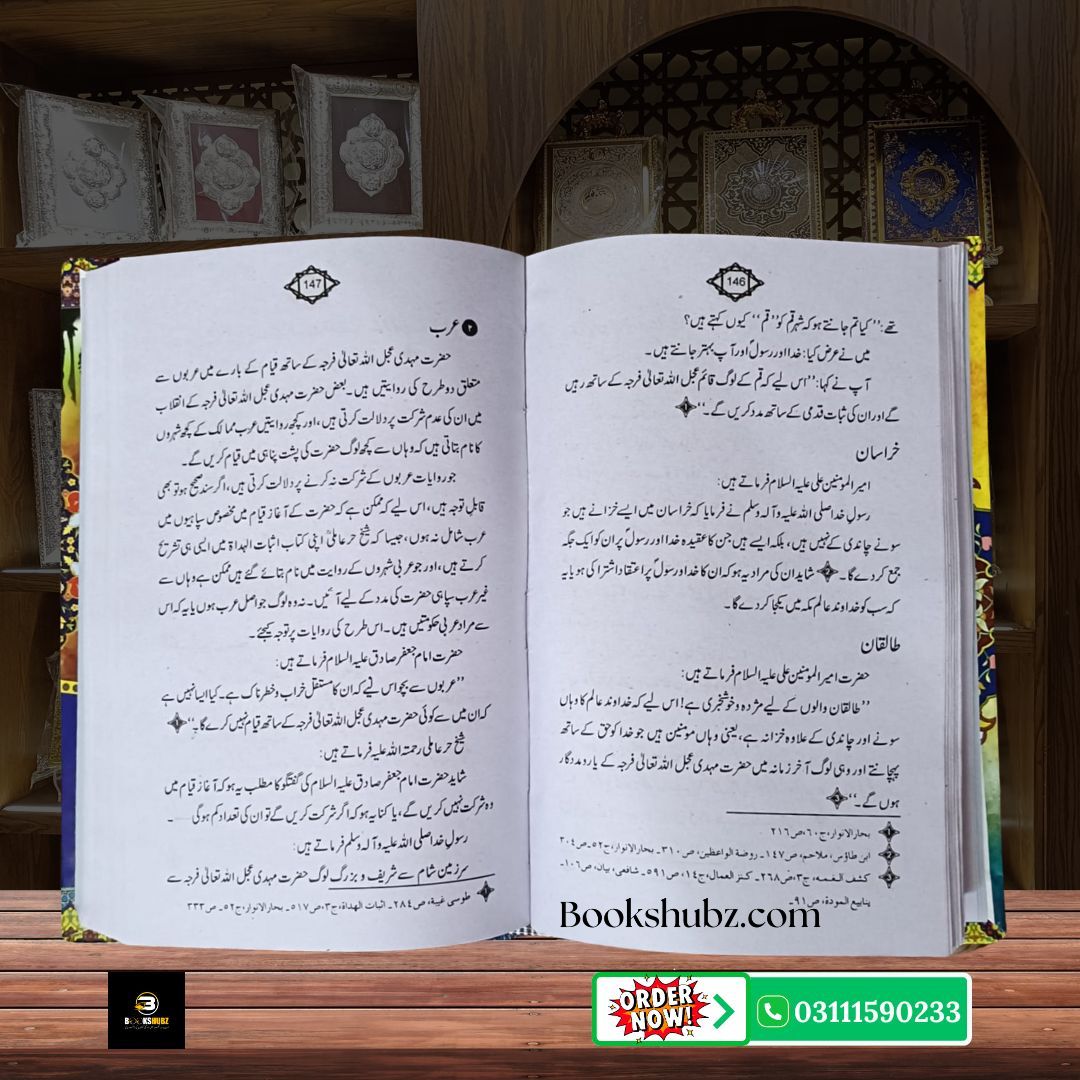 146
تھے: ’’کیا تم جانتے ہو کہ شہر قم کو ’’قم‘‘ کیوں کہتے ہیں؟
میں نے عرض کیا: خدا اور رسولؐ اور آپ بہتر جانتے ہیں۔
آپ نے کہا: ’’اس لیے کہ قم کے لوگ قائم عجل اللہ تعالیٰ فرجہ کے ساتھ رہیں
گے اور ان کی ثبات قدمی کے ساتھ مدد کریں گے۔‘‘ ۱
خراسان
امیر المومنین علی علیہ السلام فرماتے ہیں:
رسول خدا صلی اللہ علیہ وآلہ وسلم نے فرمایا کہ خراسان میں ایسے خزانے ہیں جو
سونے چاندی کے نہیں ہیں، بلکہ ایسے ہیں جن کا عقیدہ خدا اور رسولؐ پر ان کو ایک جگہ
جمع کر دے گا۔ ۲ شاید ان کی مراد یہ ہو کہ ان کا خدا و رسولؐ پر اعتقاد اشتراکی ہو یا یہ
کہ سب کو خداوند عالم مکہ میں یکجا کر دے گا۔
طالقان
حضرت امیر المومنین علی علیہ السلام فرماتے ہیں:
’’طالقان والوں کے لیے مژدہ و خوشخبری ہے! اس لیے کہ خداوند عالم کا وہاں
سونے اور چاندی کے علاوہ خزانہ ہے، یعنی وہاں مومنین ہیں جو خدا کو حق کے ساتھ
پہچانتے اور وہی لوگ آخر زمانہ میں حضرت مہدی عجل اللہ تعالیٰ فرجہ کے یار و مددگار
ہوں گے۔‘‘ ۳
۱ بحار الانوار، ج۶۰، ص۲۱۶
۲ ابن طاؤس، ملاحم، ص۱۴۷۔ روضۃ الواعظین، ص۳۱۰۔ بحار الانوار، ج۵۲۔ ص۳۰۴
۳ کشف الغمہ، ج۳، ص۲۶۸۔ کنز العمال، ج۱۴، ص۵۹۱۔ شافعی، بیان، ص۱۰۶۔
ینابیع المودۃ، ص۹۱۔
147
۲ عرب
حضرت مہدی عجل اللہ تعالیٰ فرجہ کے ساتھ قیام کے بارے میں عربوں سے
متعلق دو طرح کی روایتیں ہیں۔ بعض حضرت مہدی عجل اللہ تعالیٰ فرجہ کے انقلاب
میں ان کی عدم شرکت پر دلالت کرتی ہیں، اور کچھ روایتیں عرب ممالک کے کچھ شہروں
کا نام بتاتی ہیں کہ وہاں سے کچھ لوگ حضرت کی پشت پناہی میں قیام کریں گے۔
جو روایات عربوں کے شرکت نہ کرنے پر دلالت کرتی ہیں، اگر سند صحیح ہو تو بھی
قابل توجہ ہیں، اس لیے کہ ممکن ہے کہ حضرت کے آغاز قیام میں مخصوص سپاہیوں میں
عرب شامل نہ ہوں، جیسا کہ شیخ حر عاملیؒ اپنی کتاب اثبات الہداۃ میں ایسی ہی تشریح
کرتے ہیں، اور جو عربی شہروں کے روایت میں نام بتائے گئے ہیں ممکن ہے وہاں سے
غیر عرب سپاہی حضرت کی مدد کے لیے آئیں۔ نہ وہ لوگ جو اصل عرب ہوں یا یہ کہ اس
سے مراد عربی حکومتیں ہیں۔ اس طرح کی روایات پر توجہ کیجئے۔
حضرت امام جعفر صادق علیہ السلام فرماتے ہیں:
’’عربوں سے بچو اس لیے کہ ان کا مستقبل خراب و خطرناک ہے۔ کیا ایسا نہیں ہے
کہ ان میں سے کوئی حضرت مہدی عجل اللہ تعالیٰ فرجہ کے ساتھ قیام نہیں کرے گا۔‘‘ ۱
شیخ حر عاملی رحمتہ اللہ علیہ فرماتے ہیں:
شاید حضرت امام جعفر صادق علیہ السلام کی گفتگو کا مطلب یہ ہو کہ آغاز قیام میں
وہ شرکت نہیں کریں گے، یا کنایہ ہو کہ اگر شرکت کریں گے تو ان کی تعداد کم ہوگی۔
رسول خدا صلی اللہ علیہ وآلہ وسلم فرماتے ہیں:
سرزمین شام سے شریف و بزرگ لوگ حضرت مہدی عجل اللہ تعالیٰ فرجہ سے
۱ طوسی غیبۃ، ص۲۸۴۔ اثبات الہداۃ، ج۳، ص۵۱۷۔ بحار الانوار، ج۵۲۔ ص۳۳۳
Bookshubz.com
BOOKSHUBZ
ORDER NOW!
03111590233